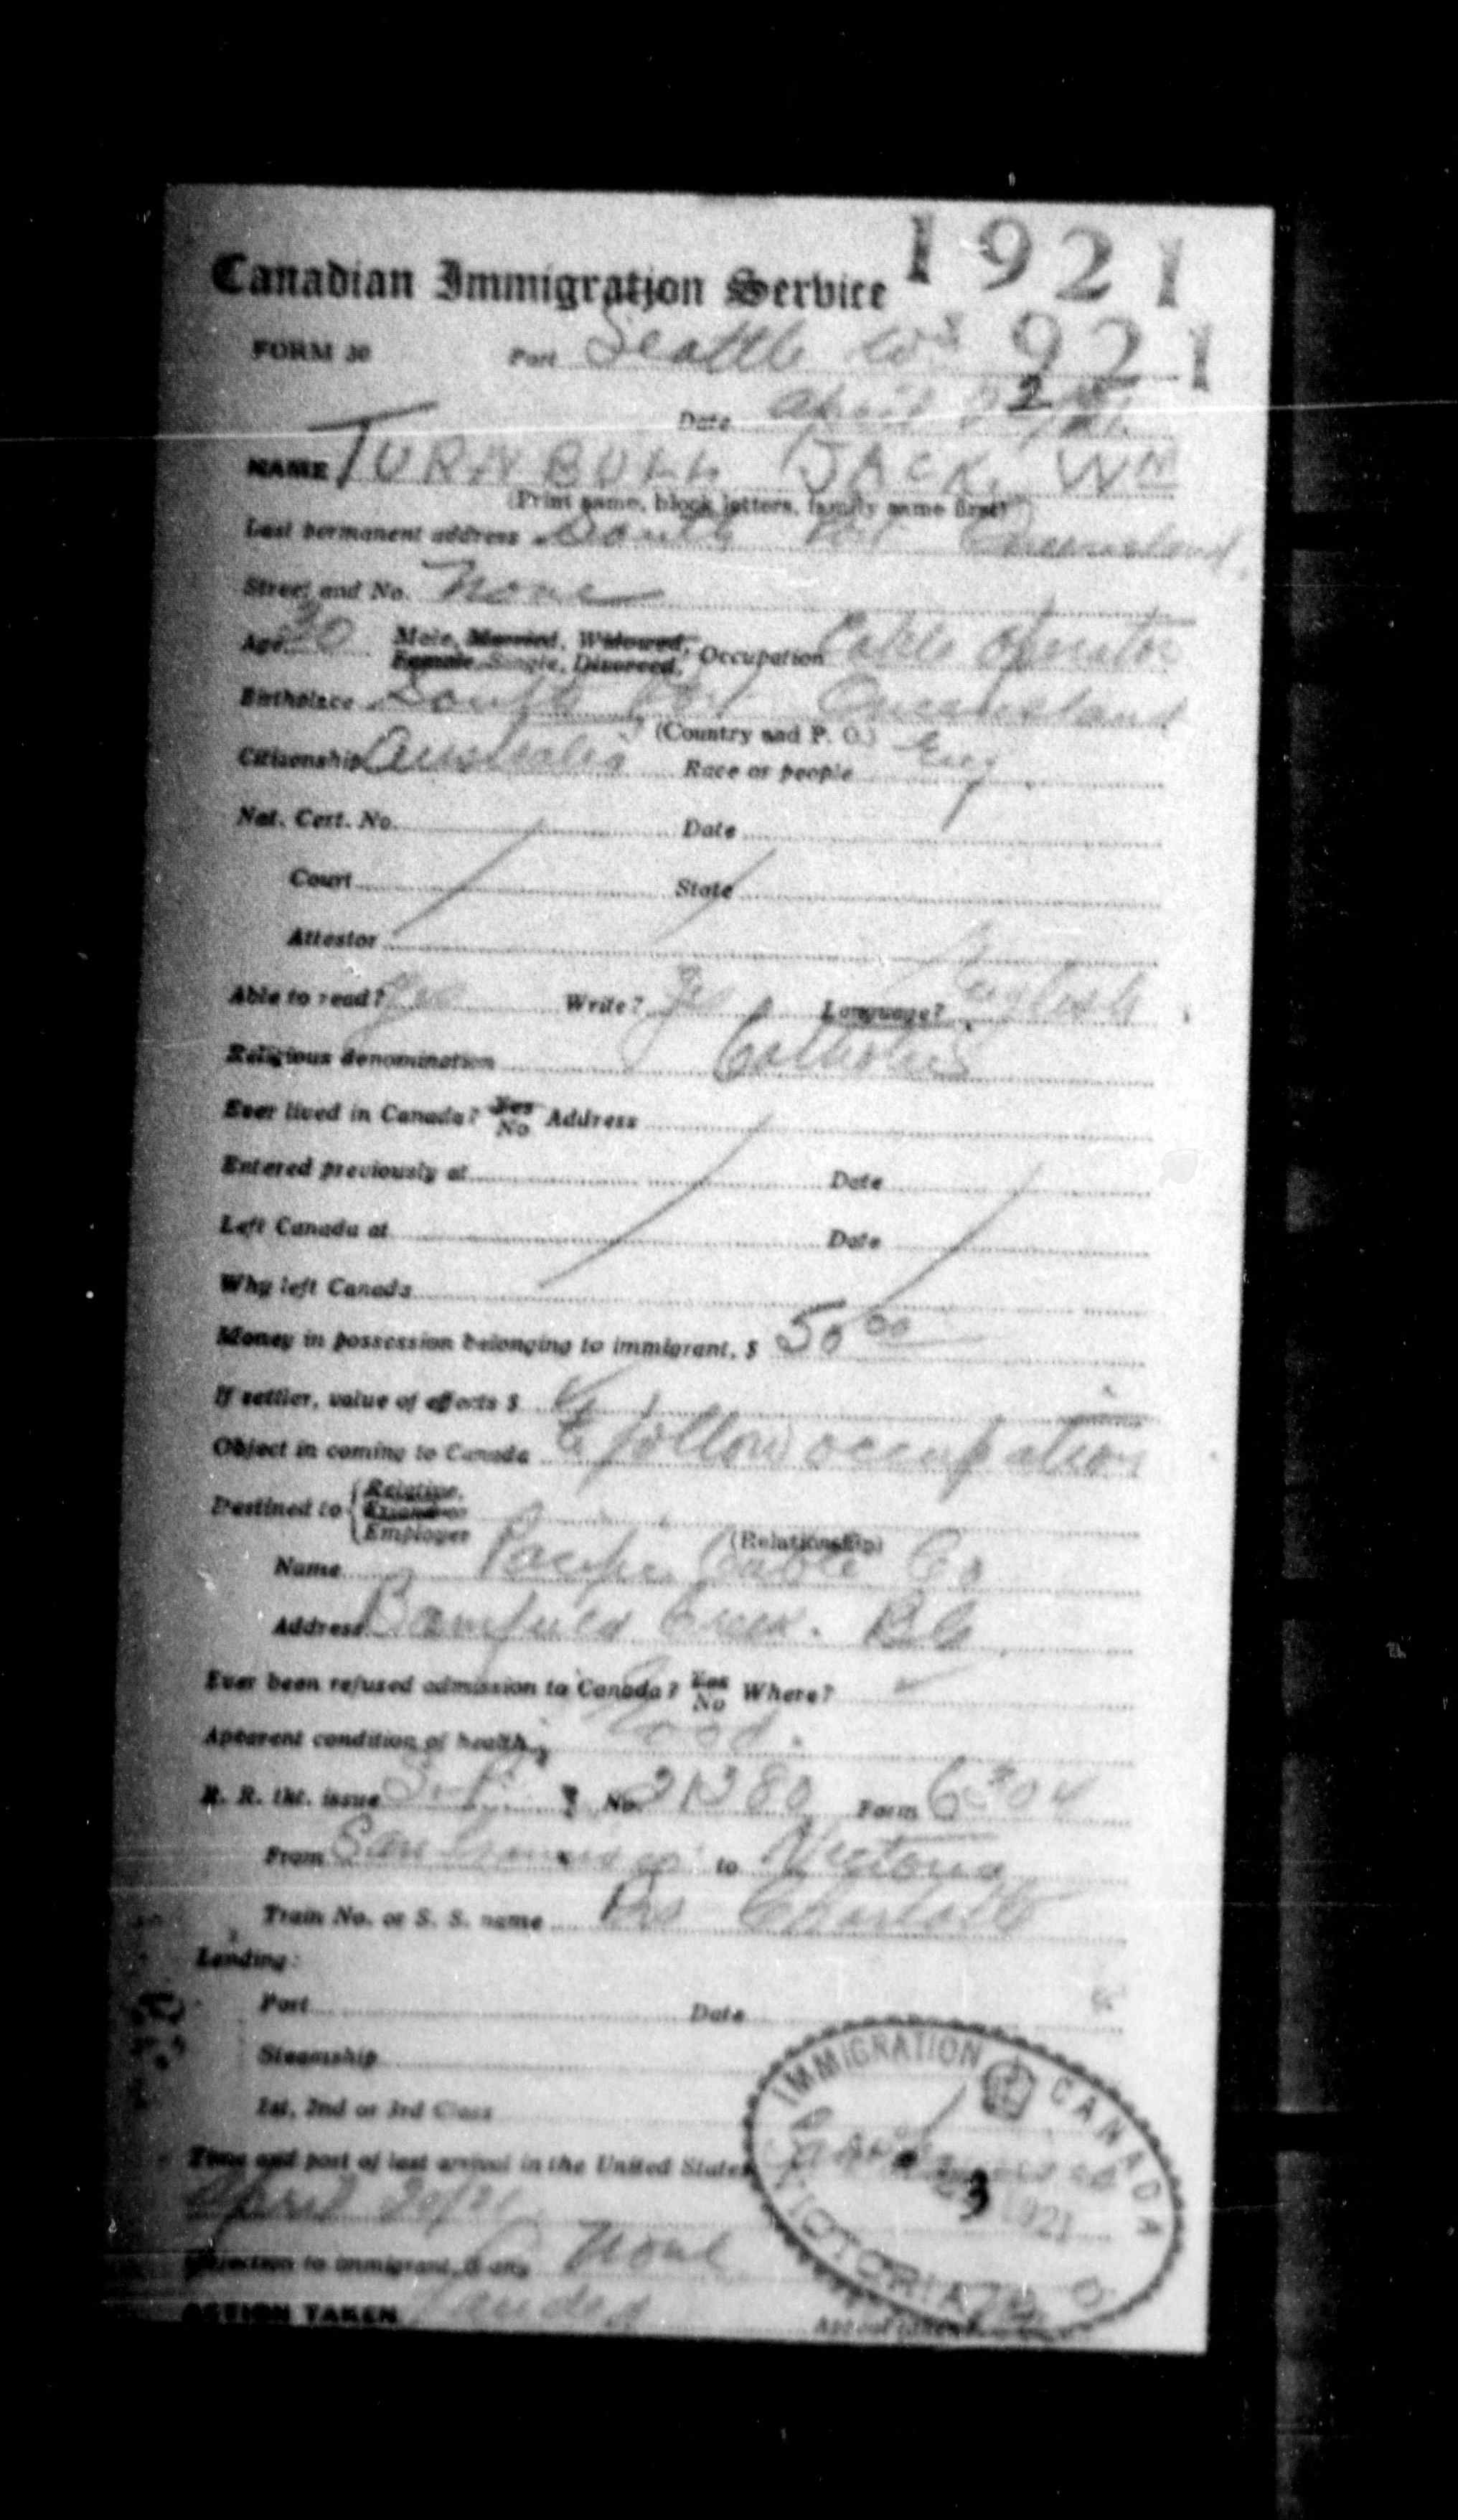 1921
Canadian Immigration Service
921
FORM 30 Port Seattle Ws
Date April 22/21
NAME TURNBULL JACK. Wm
(Print name, block letters, family name first)
Last permanent address South Port Queensland.
Street and No. None
Age 30 Male, Married, Widowed, Occupation Cable Operator
Female, Single, Divorced,
Birthplace South Port Queensland
(Country and P. O.)
Citizenship Australia Race or people Eng
Nat. Cert. No. Date
Court State
Attestor
Able to read? Yes Write? Yes Language? English
Religious denomination Catholic
Ever lived in Canada? Yes No Address
Entered previously at Date
Left Canada at Date
Why left Canada
Money in possession belonging to immigrant, $ 50 00
If settler, value of effects $
Object in coming to Canada to follow occupation
Destined to Relative. Friend or Employer
(Relationship)
Name Pacific Cable Co
Address Bamfield Creek. BC
Ever been refused admission to Canada? Yes No Where?
Apparent condition of health, Good.
R. R. tkt. issue S.P. No. 21380 Form
From San Francisco to Victoria
Train No. or S. S. name Prs Charlotte
Landing:
Port Date
Steamship
1st, 2nd or 3rd Class
Time and port of last arrival in the United States
April 20/21
Objection to immigrant, if any None
ACTION TAKEN Landed
IMMIGRATION CANADA
1921
VICTORIA, B.C.